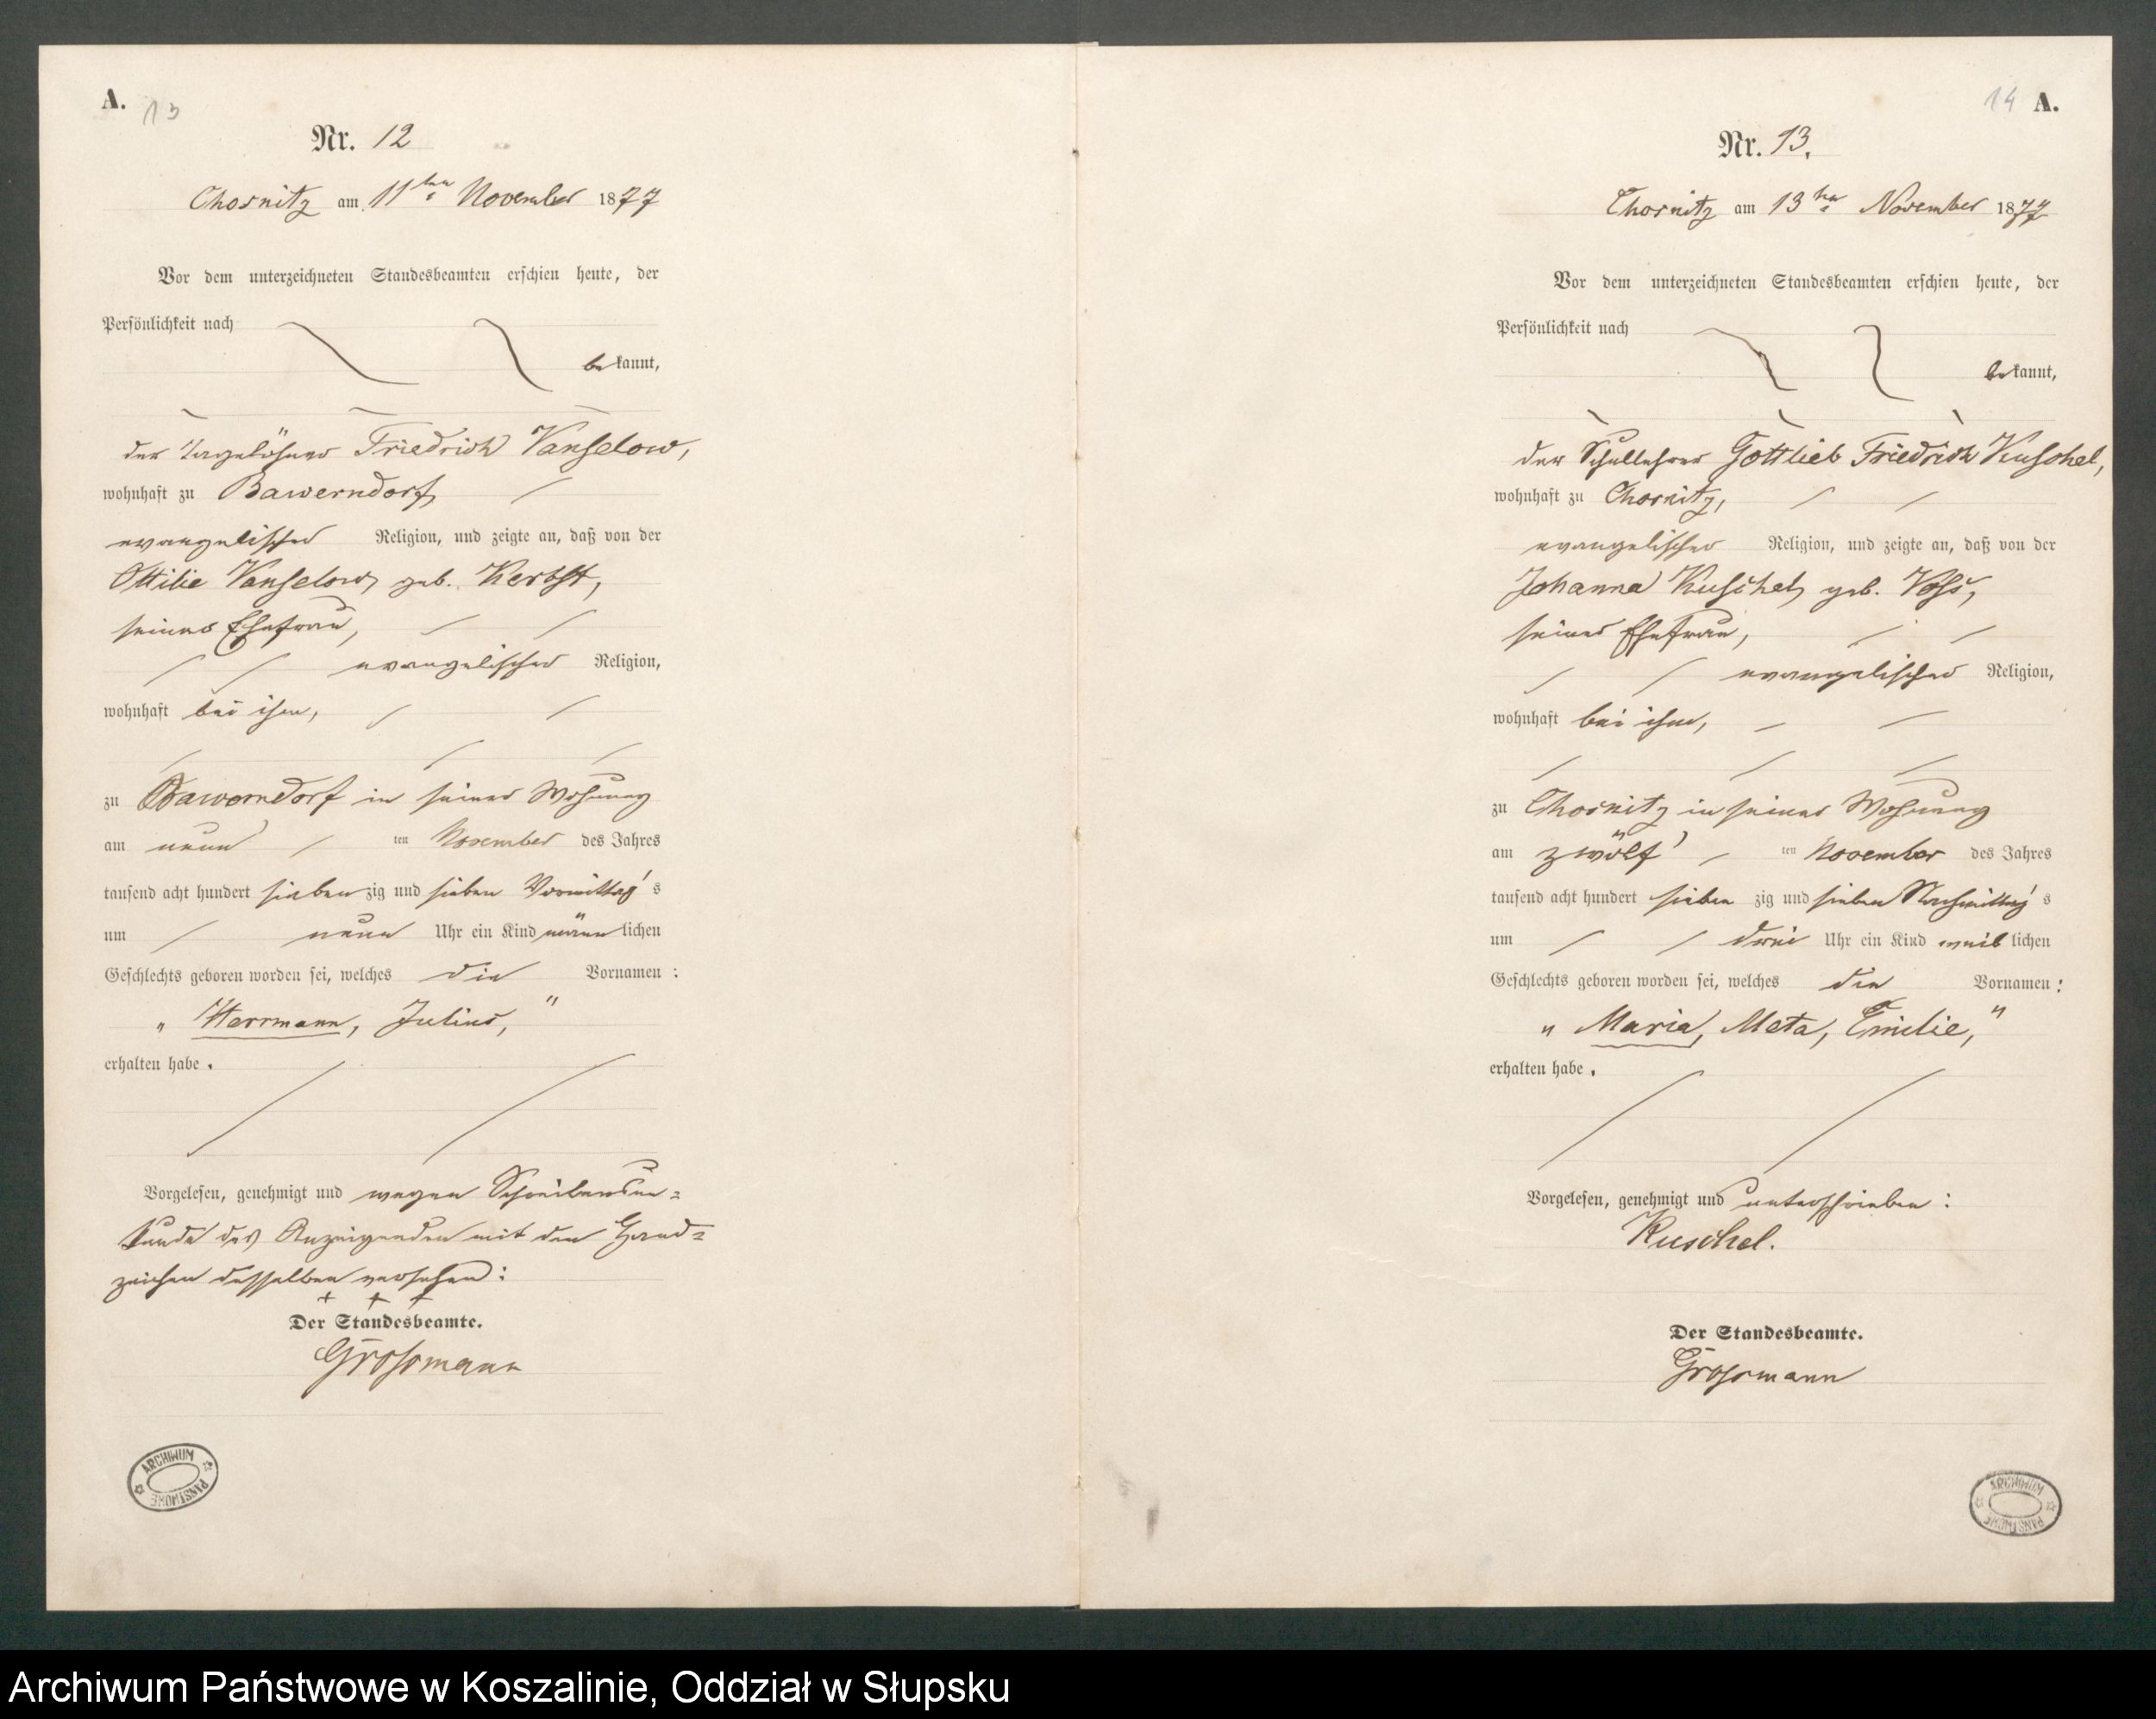 A. 13
Nr. 12
Chosnitz am 11ten November 1877
Vor dem unterzeichneten Standesbeamten erschien heute, der
Persönlichkeit nach
bekannt,
der Tagelöhner Friedrich Vanselow,
wohnhaft zu Bawerndorf
evangelischer Religion, und zeigte an, daß von der
Ottilie Vanselow, geb. Kerbst,
seiner Ehefrau,
evangelischer Religion,
wohnhaft bei ihm,
zu Bawerndorf in seiner Wohnung
am neun ten November des Jahres
tausend acht hundert siebenzig und sieben Vormittags
um neun Uhr ein Kind männlichen
Geschlechts geboren worden sei, welches die Vornamen:
„Herrmann, Julius,"
erhalten habe.
Vorgelesen, genehmigt und wegen Schreibensun=
kunde des Anzeigenden mit den Hand=
zeichen desselben versehen:
+ + +
Der Standesbeamte.
Grossmann
ARCHIWUM PAŃSTWOWE
14 A.
Nr. 13.
Chosnitz am 13ten November 1877
Vor dem unterzeichneten Standesbeamten erschien heute, der
Persönlichkeit nach
bekannt,
der Schullehrer Gottlieb Friedrich Kuschel,
wohnhaft zu Chosnitz,
evangelischer Religion, und zeigte an, daß von der
Johanna Kuschel, geb. Voss,
seiner Ehefrau,
evangelischer Religion,
wohnhaft bei ihm,
zu Chosnitz in seiner Wohnung
am zwölf ten November des Jahres
tausend acht hundert siebenzig und sieben Nachmittags
um drei Uhr ein Kind weiblichen
Geschlechts geboren worden sei, welches die Vornamen:
„Maria, Meta, Emilie,"
erhalten habe.
Vorgelesen, genehmigt und unterschrieben:
Kuschel.
Der Standesbeamte.
Grossmann
ARCHIWUM PAŃSTWOWE
Archiwum Państwowe w Koszalinie, Oddział w Słupsku